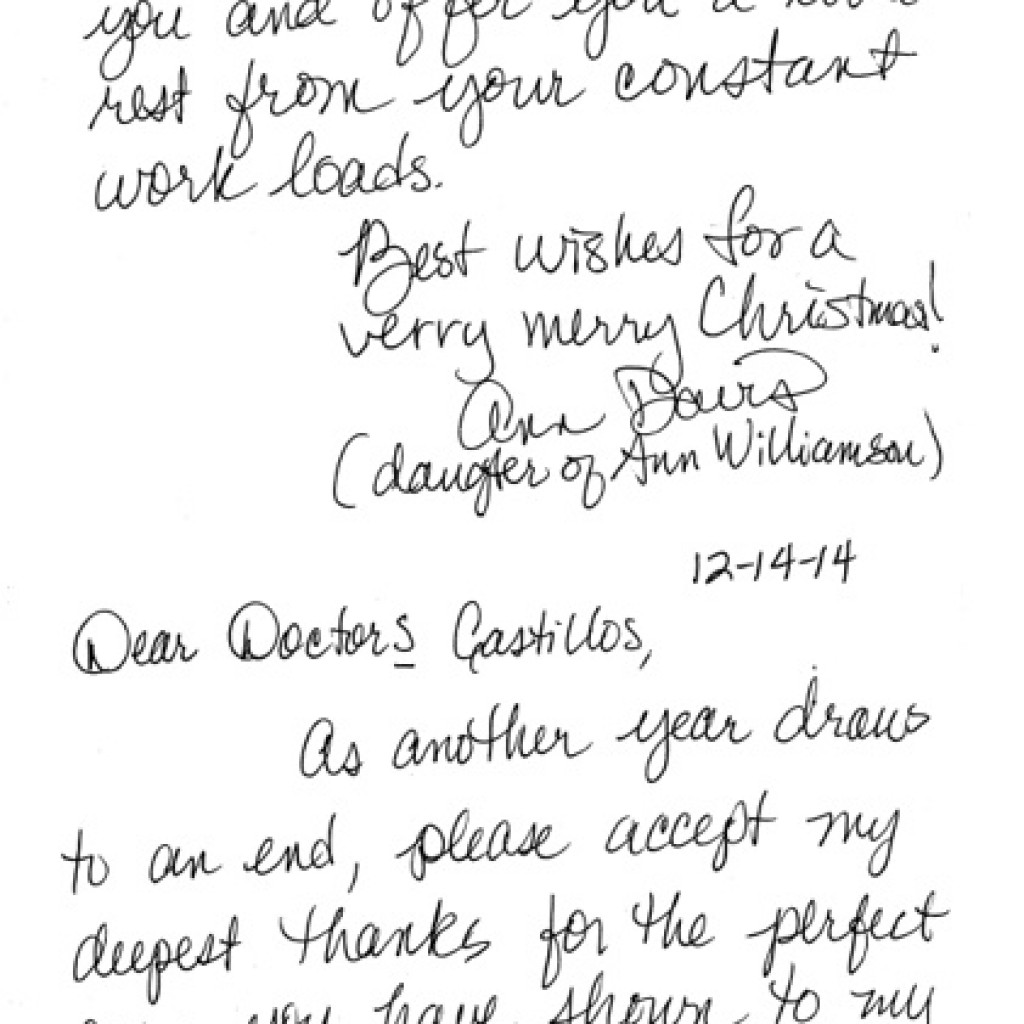 you and offer you a
rest from your constant
work loads.
Best wishes for a
verry merry Christmas!
Ann Davis
(daugter of Ann Williamson)
12-14-14
Dear Doctors Castillos,
As another year draws
to an end, please accept my
deepest thanks for the perfect
you have shown to my